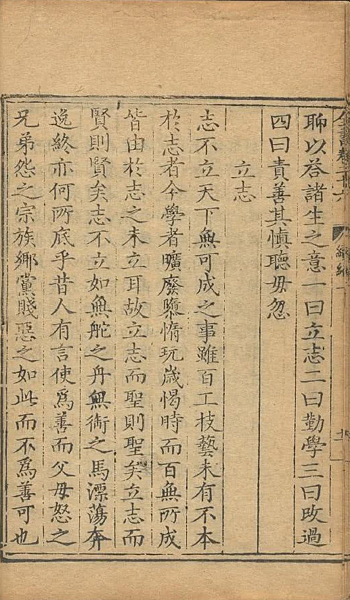 聊以荅諸生之意一曰立志二曰勤學三曰改過
四曰責善其慎聽毋忽
立志
志不立天下無可成之事雖百工技藝未有不本
於志者今學者曠廢隳惰玩歲愒時而百無所成
皆由於志之未立耳故立志而聖則聖矣立志而
賢則賢矣志不立如無舵之舟無銜之馬漂蕩奔
逸終亦何所底乎昔人有言使爲善而父母怒之
兄弟怨之宗族鄉黨賤惡之如此而不爲善可也